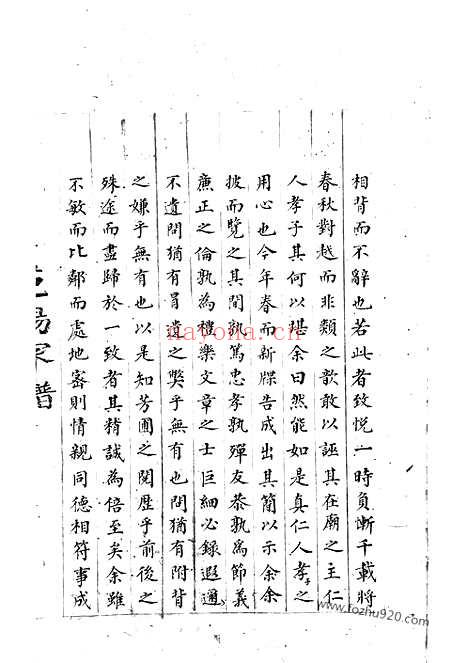 相背而不辭也若此者致悦一時負慚千載將
春秋對越而非類之歆敢以誣其在廟之主仁
人孝子其何以堪余曰然能如是真仁人孝子之
用心也今年春而新牒告成出其簡以示余余
披而覽之其間孰篤忠孝孰殫友恭孰為節義
廉正之倫孰為禮樂文章之士巨細必錄遐邇
不遺問猶有冒遺之弊乎無有也問猶有附背
之嫌乎無有也以是知芳圃之閱歷乎前後之
殊途而盡歸於一致者其精誠為倍至矣余雖
不敏而比鄰而處地密則情親同德相符事成
陽家譜
nayona.cn
www.fozhu920.com